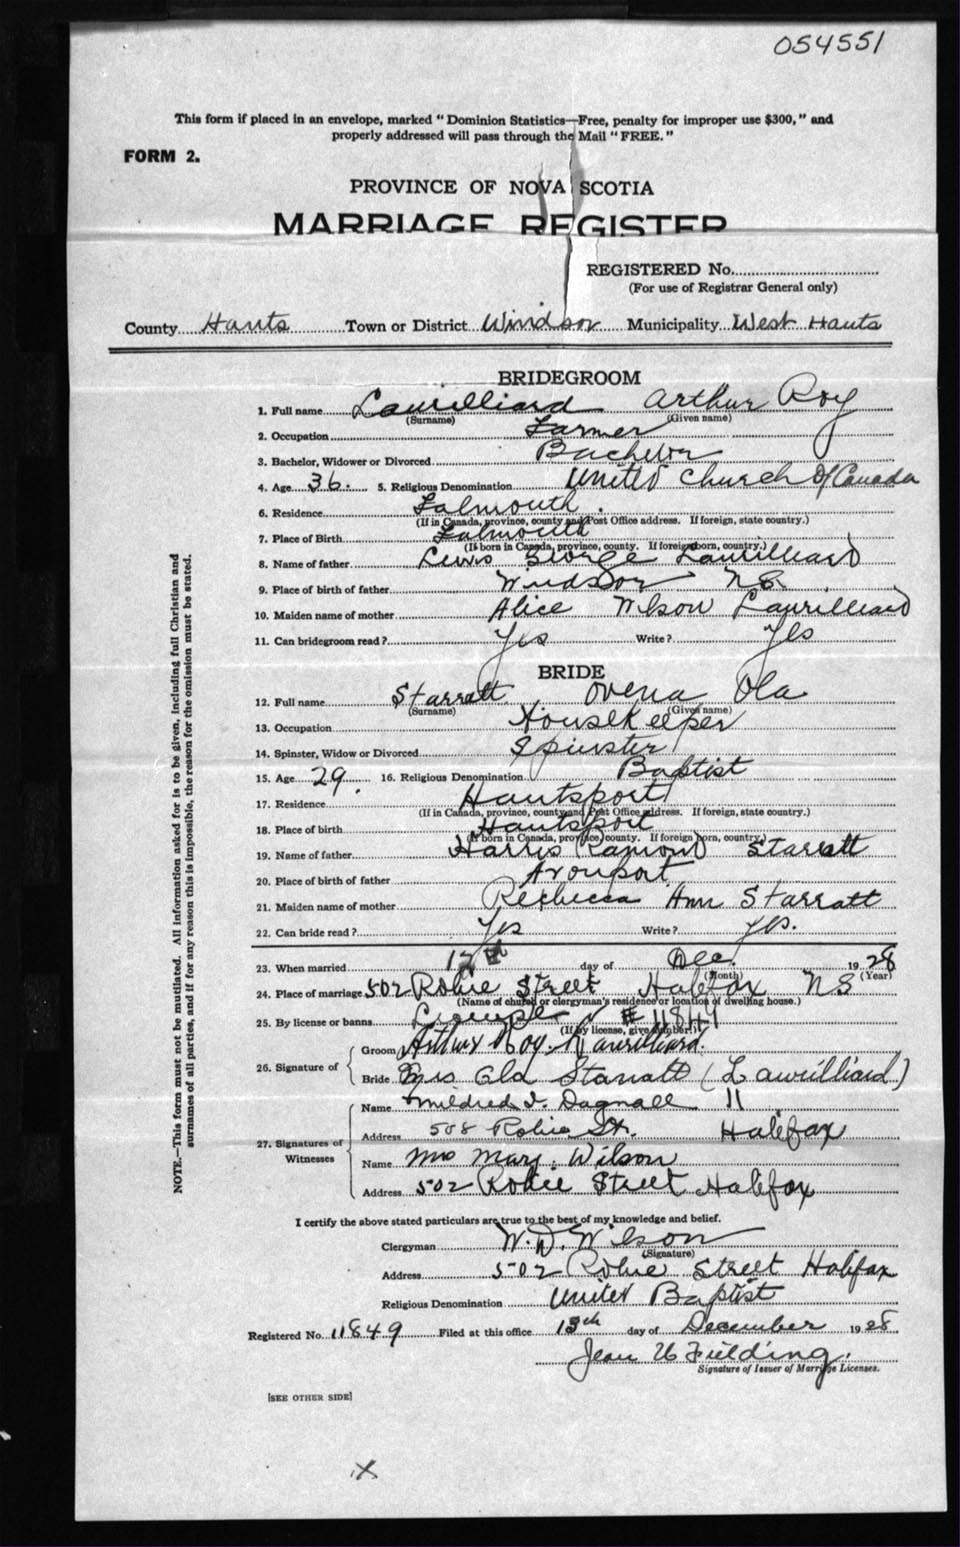 054551
This form if placed in an envelope, marked "Dominion Statistics—Free, penalty for improper use $300," and
properly addressed will pass through the Mail "FREE."
FORM 2.
PROVINCE OF NOVA SCOTIA
MARRIAGE REGISTER
REGISTERED No.
(For use of Registrar General only)
County Hants Town or District Windsor Municipality West Hants
BRIDEGROOM
1. Full name Laurilliard Arthur Roy
(Surname) (Given name)
2. Occupation Farmer
3. Bachelor, Widower or Divorced Bachelor
4. Age 36. 5. Religious Denomination United Church Of Canada
6. Residence Falmouth.
(If in Canada, province, county and Post Office address. If foreign, state country.)
7. Place of Birth Falmouth
(If born in Canada, province, county. If foreign born, country.)
8. Name of father Lewis George Laurilliard
9. Place of birth of father Windsor NS.
10. Maiden name of mother Alice Wilson Laurilliard
11. Can bridegroom read? Yes Write? Yes
BRIDE
12. Full name Starratt Ovena Ola
(Surname) (Given name)
13. Occupation Housekeeper
14. Spinster, Widow or Divorced Spinster
15. Age 29. 16. Religious Denomination Baptist
17. Residence Hantsport
(If in Canada, province, county and Post Office address. If foreign, state country.)
18. Place of birth Hantsport
(If born in Canada, province, county. If foreign born, country.)
19. Name of father Harris Ramond Starratt
20. Place of birth of father Avonport
21. Maiden name of mother Rebecca Ann Starratt
22. Can bride read? Yes Write? yes.
23. When married 17 day of Dec. 1928
(Month) (Year)
24. Place of marriage 502 Robie Street Halifax NS
(Name of church or clergyman's residence or location of dwelling house.)
25. By license or banns License # 11849
(If by license, give number.)
26. Signature of
Groom Arthur Roy Laurilliard.
Bride Mrs. Ola Starratt (Laurilliard)
27. Signatures of Witnesses
Name Mildred I. Dagnall 11
Address 508 Robie St. Halifax
Name Mrs Mary Wilson
Address 502 Robie Street Halifax
I certify the above stated particulars are true to the best of my knowledge and belief.
Clergyman W. D. Wilson
(Signature)
Address 502 Robie Street Halifax
Religious Denomination United Baptist
Registered No. 11849 Filed at this office 13th day of December 1928
Jean Fielding.
Signature of Issuer of Marriage Licenses.
[SEE OTHER SIDE]
X
NOTE.—This form must not be mutilated. All information asked for is to be given, including full Christian and
surnames of all parties, and if for any reason this is impossible, the reason for the omission must be stated.